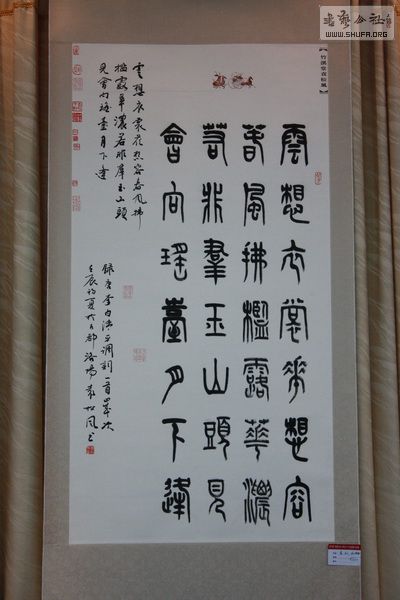 書藝公社
WWW.SHUFA.ORG
雲想衣裳華想容
春風拂檻露華濃
若非羣玉山頭見
會向瑤臺月下逢
雲想衣裳花想容春風拂
檻露華濃若非羣玉山頭
見會向瑤臺月下逢
錄唐李白清平調一首歲次
壬辰初夏於古都洛陽袁松風書